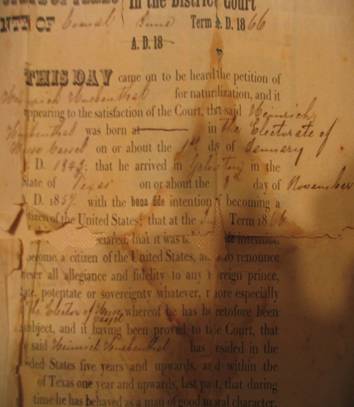 In the District Court
NTY OF Comal June Term A. D. 1866
A. D. 18
THIS DAY came on to be heard the petition of
Heinrich for naturalization, and it
appearing to the satisfaction of the Court, that said Heinrich
was born at in the Electorate of
Hesse Cassel on or about the 1st day of January
D. 1843; that he arrived in Galveston in the
State of Texas on or about the day of November
D. 1857 with the bona fide intention of becoming a
citizen of the United States; that at the Term 1866
declared, that it was
become a citizen of the United States, and to renounce
ever all allegiance and fidelity to any foreign prince,
potentate or sovereignty whatever, more especially
the Elector of Hesse Cassel whereof he has heretofore been
subject, and it having been proved to the Court, that
said Heinrich has resided in the
United States five years and upwards, and within the
of Texas one year and upwards, last past, that during
time he has behaved as a man of good moral character,